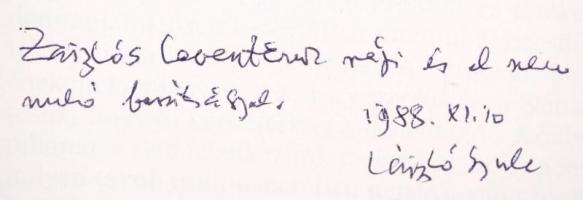 Zászlós Leventének régi és el nem
múló barátsággal.
1988. XI. 10
László Gyula